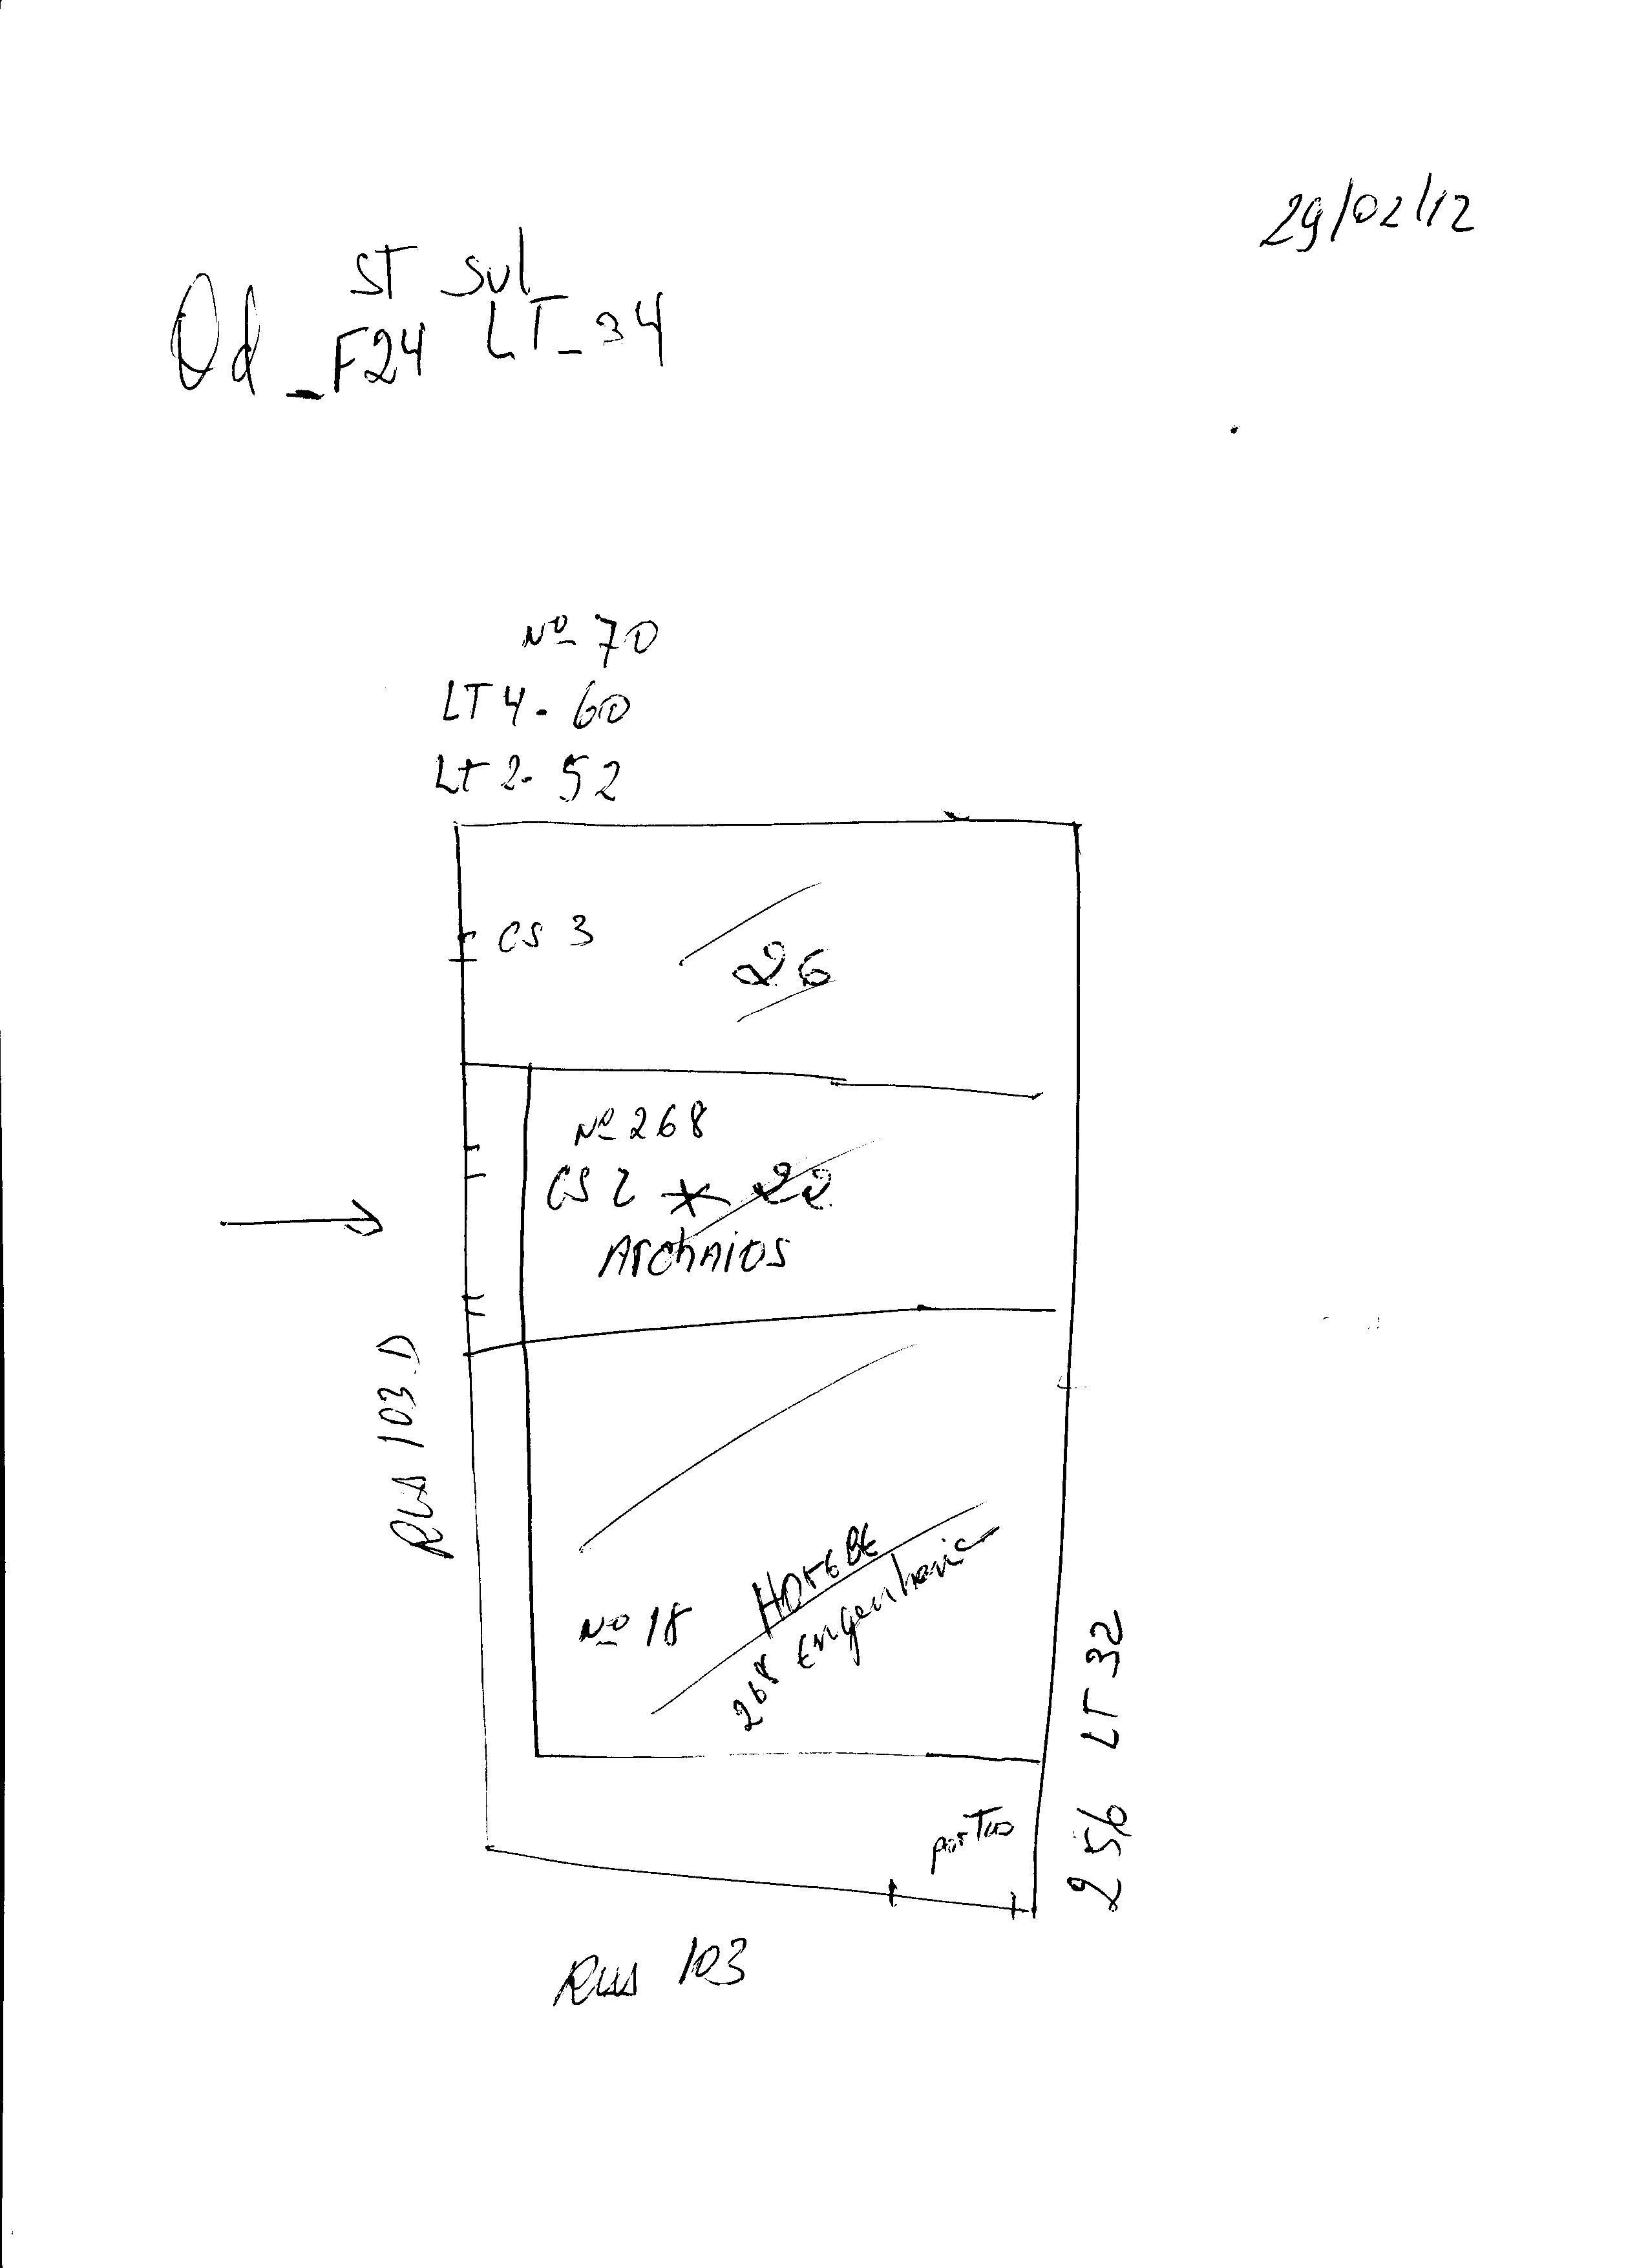 29/02/12
ST Sul
Qd_F24 LT_34
Nº 70
LT 4. 60
LT 2. 52
CS 3
26
Nº 268
CS 2 * 22
Rua 103.D
Nº 18
268 Engenharia
LT 32
256
Rua 103